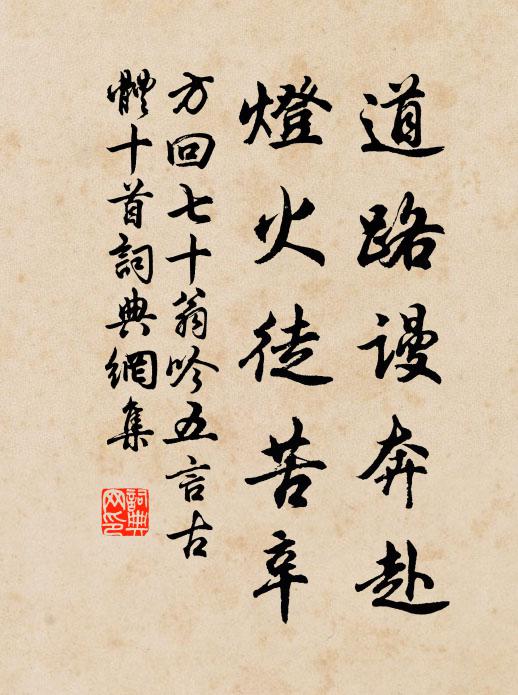 道路謾奔赴
燈火徒苦辛
方回七十翁吟五言古
體十首詞典網集
詞典
网印